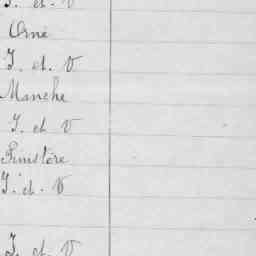 I. et. V
Orne
I. et. V
Manche
I. et V
Finistère
I. et. V
I. et. V